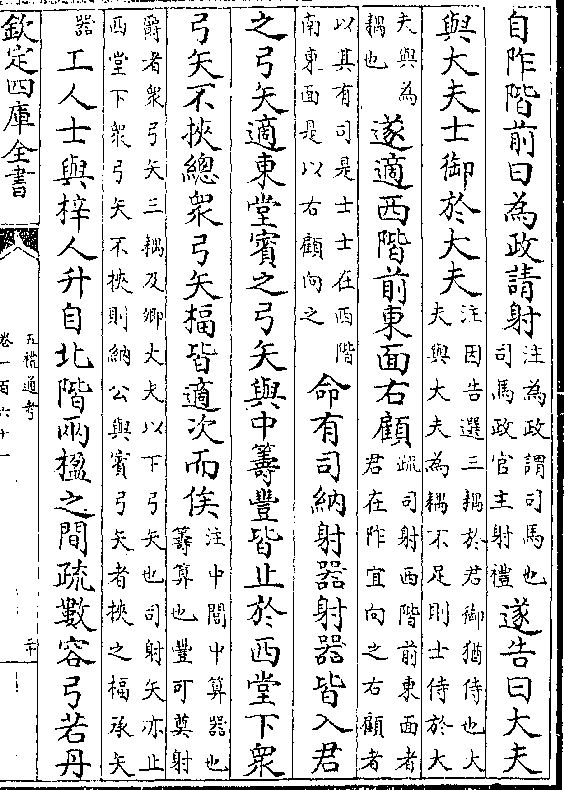 自阼階前曰為政請射注為政謂司馬也司馬政官主射禮遂告曰大夫
與大夫士御於大夫注因告選三耦於君御猶侍也大夫與大夫為耦不足則士侍於大
夫與為耦也遂適西階前東面右顧疏司射西階前東面者君在阼宜向之右顧者
以其有司是士士在西階南東面是以右顧向之命有司納射器射器皆入君
之弓矢適東堂賓之弓矢與中籌豐皆止於西堂下衆
弓矢不挾總衆弓矢楅皆適次而俟注中閭中算器也籌算也豐可奠射
爵者衆弓矢三耦及卿大夫以下弓矢也司射矢亦止西堂下衆弓矢不挾則納公與賓弓矢者挾之楅承矢
器工人士與梓人升自北階兩楹之間疏數容弓若丹
欽定四庫全書
五禮通考
卷一百六十一
二十